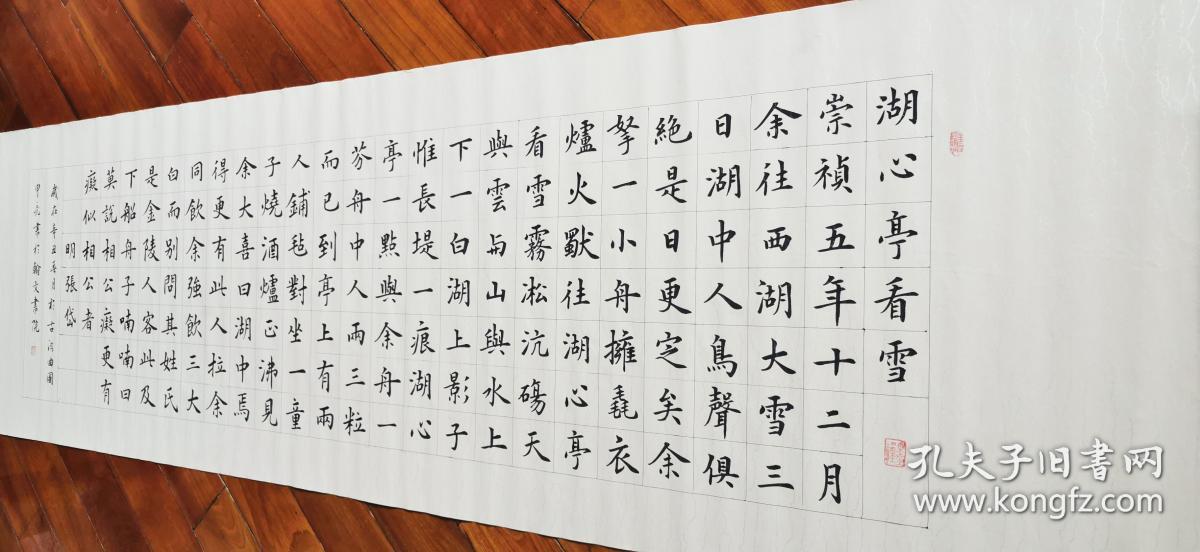 湖心亭看雪
崇禎五年十二月
余往西湖大雪三
日湖中人鳥聲俱
絶是日更定矣余
拏一小舟擁毳衣
爐火獸往湖心亭
看雪霧凇沆碭天
與雲与山與水上
下一白湖上影子
惟長堤一痕湖心
亭一點與余舟一
芥舟中人兩三粒
而已到亭上有兩
人鋪毡對坐一童
子燒酒爐正沸見
余大喜曰湖中焉
得更有此人拉余
同飲余強飲三大
白而别問其姓氏
是金陵人客此及
下船舟子喃喃曰
莫說相公癡更有
癡似相公者
明張岱
歲在辛丑春月於古曲園
書於翰文書院
孔夫子旧书网
www.kongfz.com